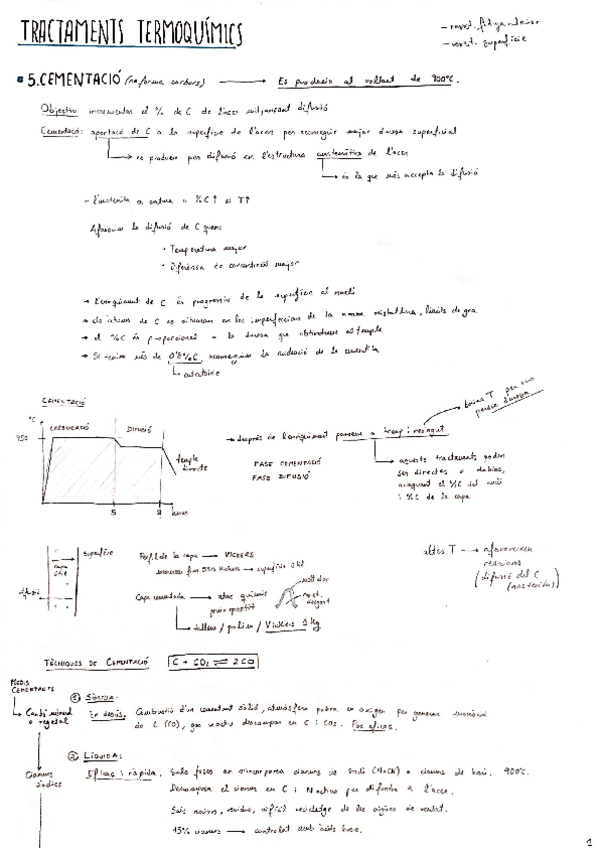 TRACTAMENTS TERMOQUÍMICS
- resist. superfície
5. CEMENTACIÓ (no forma carburs) → Es produeix al voltant de 900°C.
Objectiu: incrementar el % de C de l'acer mitjançant difusió
Cementació: aportació de C a la superfície de l'acer per aconseguir major duresa superficial
→ es produeix per difusió en l'estructura austenítica de l'acer
→ és la que més accepta la difusió
- l'austenita es satura a %C↑ si T↑
Afavorir la difusió de C quan:
· Temperatura major
· Diferència de concentració major
→ l'enriquiment de C és progressiu de la superfície al nucli
→ els àtoms de C es situaran en les imperfeccions de la xarxa cristal·lina, límits de gra
→ el %C és proporcional a la duresa que obtindrem al tremp
→ Si tenim més de 0'8%C, aconseguirem la nucleació de la cementita
CEMENTACIÓ
°C
CARBURACIÓ DIFUSIÓ
temple directe
5 hores
→ després de l'enriquiment passem a tremp i revingut
→ baixa T per no perdre duresa
FASE CEMENTACIÓ
FASE DIFUSIÓ
→ aquests tractaments poden
ser directes o dobles,
el %C del nucli
i %C de la capa
superfície
capa útil
difusió
Perfil de la capa → VICKERS
→ superfície útil
Capa cementada → atac químic
→ tallem / polim / Vickers 1 kg
altes T → afavoreixen
reaccions
(difusió del C
TÈCNIQUES DE CEMENTACIÓ C + CO₂ ⇌ 2CO
MEDIS
CEMENTANTS
→ Carbó mineral
o vegetal
① SÒLIDA:
En desús. Combustió d'un cementant sòlid, atmosfera pobra en oxigen per generar monòxid
de C (CO), que descompon en C i CO₂. Poc eficaç.
Cianurs
sòdics
② LÍQUIDA:
Eficaç i ràpida. Sals foses on s'incorpora cianurs de sodi (NaCN) o cianurs de bari. 900°C.
Descomposa el cianur en C i N actius per difondre a l'acer.
Sals residus, difícil reciclatge de les aigües de rentat.
15% cianurs → controlat amb
1